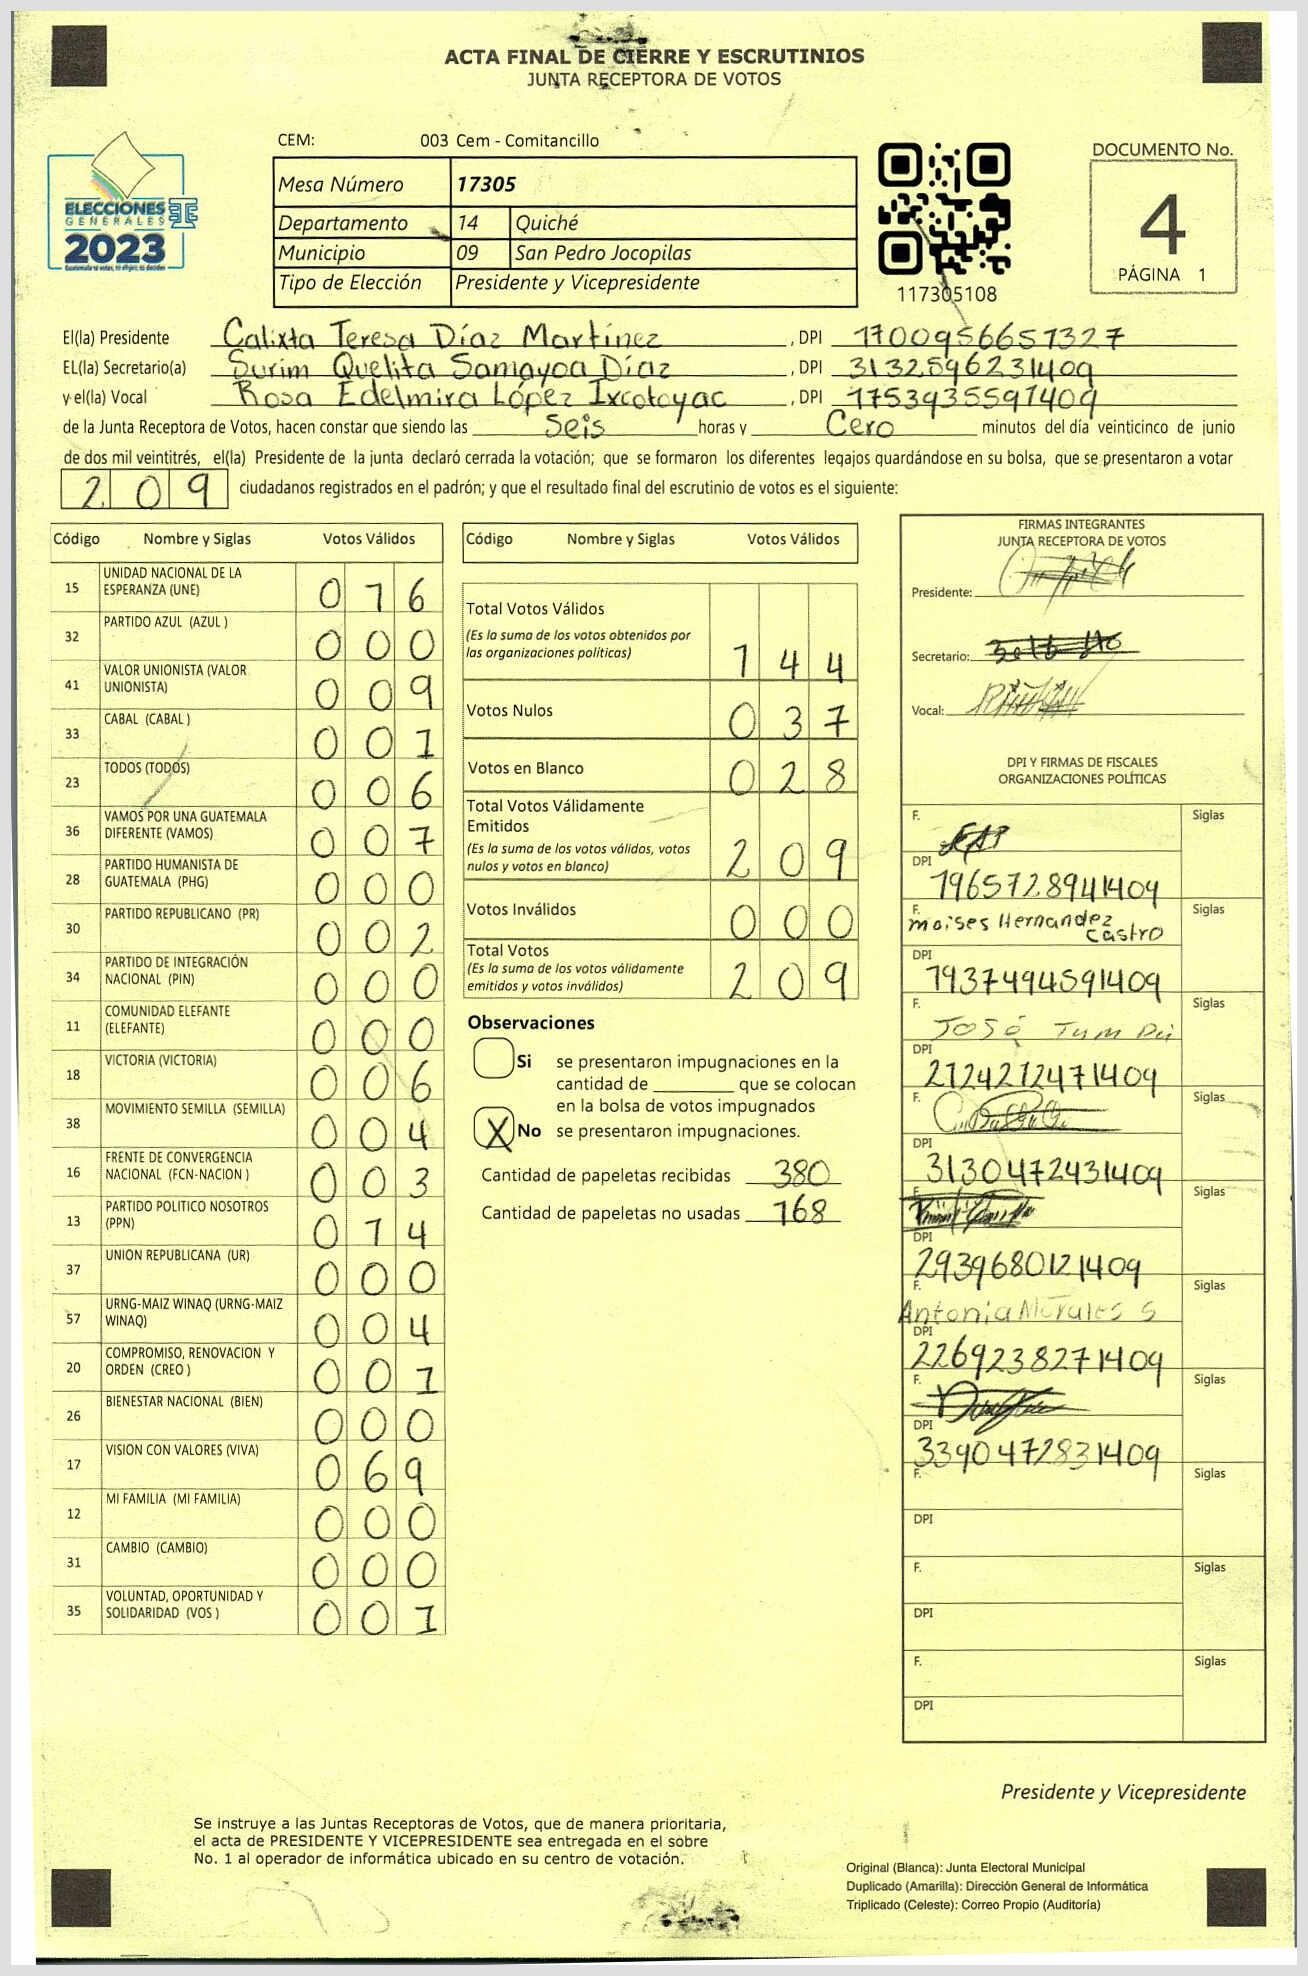 ACTA FINAL DE CIERRE Y ESCRUTINIOS
JUNTA RECEPTORA DE VOTOS
CEM: 003 Cem - Comitancillo
ELECCIONES
GENERALES
2023
Mesa Número 17305
Departamento 14 Quiché
Municipio 09 San Pedro Jocopilas
Tipo de Elección Presidente y Vicepresidente
117305108
DOCUMENTO No.
4
PÁGINA 1
El(la) Presidente Calixta Teresa Díaz Martínez, DPI 1700956651327
EL(la) Secretario(a) Surim Quelita Samayoa Díaz, DPI 3132596231409
y el(la) Vocal Rosa Edelmira López Ixcotoyac, DPI 1753935591409
de la Junta Receptora de Votos, hacen constar que siendo las Seis horas y Cero minutos del día veinticinco de junio
de dos mil veintitrés, el(la) Presidente de la junta declaró cerrada la votación; que se formaron los diferentes legajos guardándose en su bolsa, que se presentaron a votar
209 ciudadanos registrados en el padrón; y que el resultado final del escrutinio de votos es el siguiente:
Código Nombre y Siglas Votos Válidos
15 UNIDAD NACIONAL DE LA ESPERANZA (UNE) 016
32 PARTIDO AZUL (AZUL ) 000
41 VALOR UNIONISTA (VALOR UNIONISTA) 009
33 CABAL (CABAL ) 001
23 TODOS (TODOS) 006
36 VAMOS POR UNA GUATEMALA DIFERENTE (VAMOS) 007
28 PARTIDO HUMANISTA DE GUATEMALA (PHG) 000
30 PARTIDO REPUBLICANO (PR) 002
34 PARTIDO DE INTEGRACIÓN NACIONAL (PIN) 000
11 COMUNIDAD ELEFANTE (ELEFANTE) 000
18 VICTORIA (VICTORIA) 006
38 MOVIMIENTO SEMILLA (SEMILLA) 004
16 FRENTE DE CONVERGENCIA NACIONAL (FCN-NACION ) 003
13 PARTIDO POLITICO NOSOTROS (PPN) 014
37 UNION REPUBLICANA (UR) 000
57 URNG-MAIZ WINAQ (URNG-MAIZ WINAQ) 004
20 COMPROMISO, RENOVACION Y ORDEN (CREO ) 001
26 BIENESTAR NACIONAL (BIEN) 000
17 VISION CON VALORES (VIVA) 069
12 MI FAMILIA (MI FAMILIA) 000
31 CAMBIO (CAMBIO) 000
35 VOLUNTAD, OPORTUNIDAD Y SOLIDARIDAD (VOS ) 001
Código Nombre y Siglas Votos Válidos
Total Votos Válidos
(Es la suma de los votos obtenidos por
las organizaciones políticas) 144
Votos Nulos 037
Votos en Blanco 028
Total Votos Válidamente
Emitidos
(Es la suma de los votos válidos, votos
nulos y votos en blanco) 209
Votos Inválidos 000
Total Votos
(Es la suma de los votos válidamente
emitidos y votos inválidos) 209
Observaciones
Si se presentaron impugnaciones en la
cantidad de ________ que se colocan
en la bolsa de votos impugnados
X No se presentaron impugnaciones.
Cantidad de papeletas recibidas 380
Cantidad de papeletas no usadas 168
FIRMAS INTEGRANTES
JUNTA RECEPTORA DE VOTOS
Presidente:
Secretario:
Vocal:
DPI Y FIRMAS DE FISCALES
ORGANIZACIONES POLÍTICAS
F. Siglas
DPI 1965728941409
F. Moises Hernandez Castro Siglas
DPI 1937494591409
F. José Tum Siglas
DPI 2124212471409
F. Siglas
DPI 3130472431409
F. Siglas
DPI 2939680121409
F. Antonia Morales S Siglas
DPI 2269238271409
F. Siglas
DPI 3390472831409
F. Siglas
DPI
F. Siglas
DPI
F. Siglas
DPI
Presidente y Vicepresidente
Se instruye a las Juntas Receptoras de Votos, que de manera prioritaria,
el acta de PRESIDENTE Y VICEPRESIDENTE sea entregada en el sobre
No. 1 al operador de informática ubicado en su centro de votación.
Original (Blanca): Junta Electoral Municipal
Duplicado (Amarilla): Dirección General de Informática
Triplicado (Celeste): Correo Propio (Auditoría)